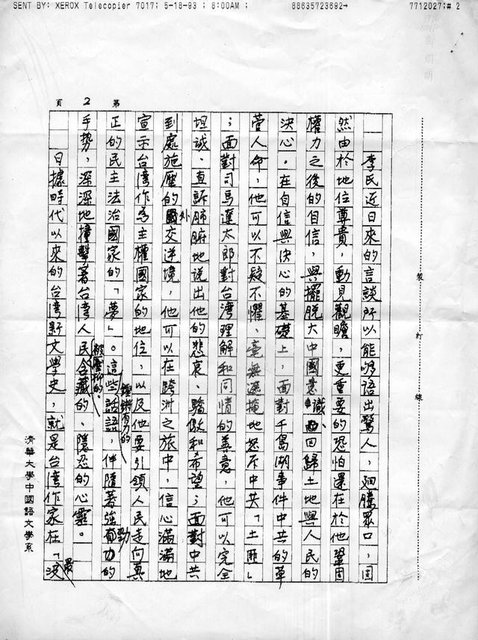 SENT BY: XEROX Telecopier 7017; 5-18-93 ; 8:00AM ; 88635723692→ 7712027;# 2
第 2 頁
李氏近日來的言談所以能够語出驚人,膾炙眾口,固
然由於地位尊貴,動見觀瞻,更重要的恐怕還在於他鞏固
權力之後的自信,與擺脫大中國意識,回歸土地與人民的
決心。在自信與決心的基礎上,面對千島湖事件中共的草
菅人命,他可以不疑不懼,毫無遮掩地怒斥中共「土匪」
;面對司馬遼太郎對台灣理解和同情的善意,他可以完全
坦誠、直訴肺腑地說出他的悲哀、驕傲和希望;面對中共
到處施壓的外交逆境,他可以在跨洲之旅中,信心滿滿地
宣示台灣作為主權國家的地位,以及他要引領人民走向真
正的民主法治國家的「夢」。這些話語,伴隨著強勁有力的
手勢,深深地撞擊著台灣人民被壓抑的、隱忍的心靈。
日據時代以來的台灣新文學史,就是台灣作家在「
裝 訂 線
清華大學中國語文學系